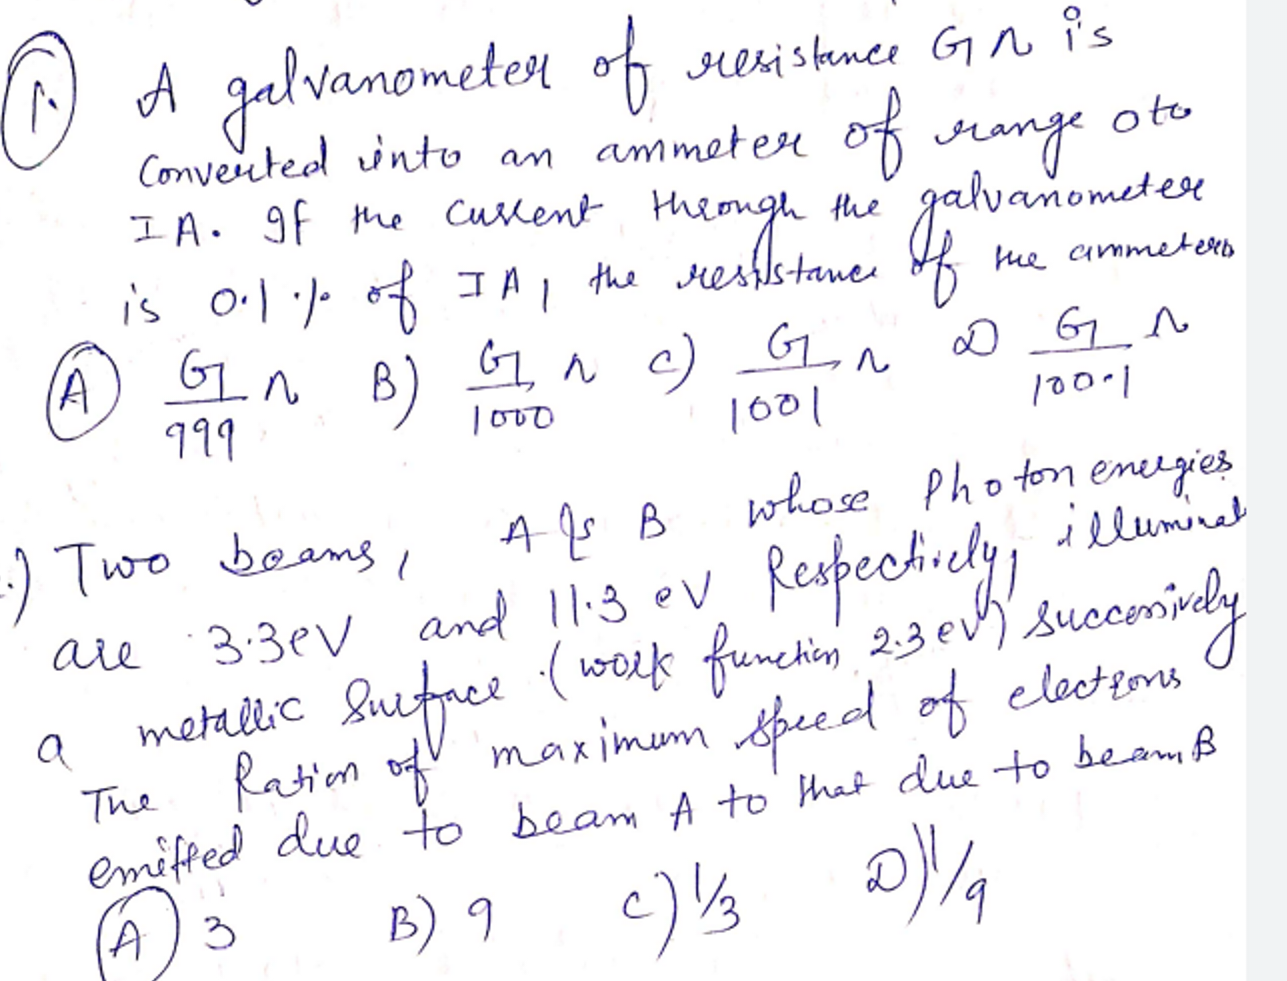 1. A galvanometer of resistance G Ω is
Converted into an ammeter of range 0 to
I A. If the current through the galvanometer
is 0.1 % of I A, the resistance of the ammeter is
A) G/999 Ω B) G/1000 Ω C) G/1001 Ω D) G/100.1 Ω
.) Two beams, A & B whose Photon energies
are 3.3eV and 11.3 eV Respectively, illuminat
a metallic Surface. (work function 2.3 eV) successively
The Ration of maximum speed of electrons
emitted due to beam A to that due to beam B
A) 3 B) 9 C) 1/3 D) 1/9